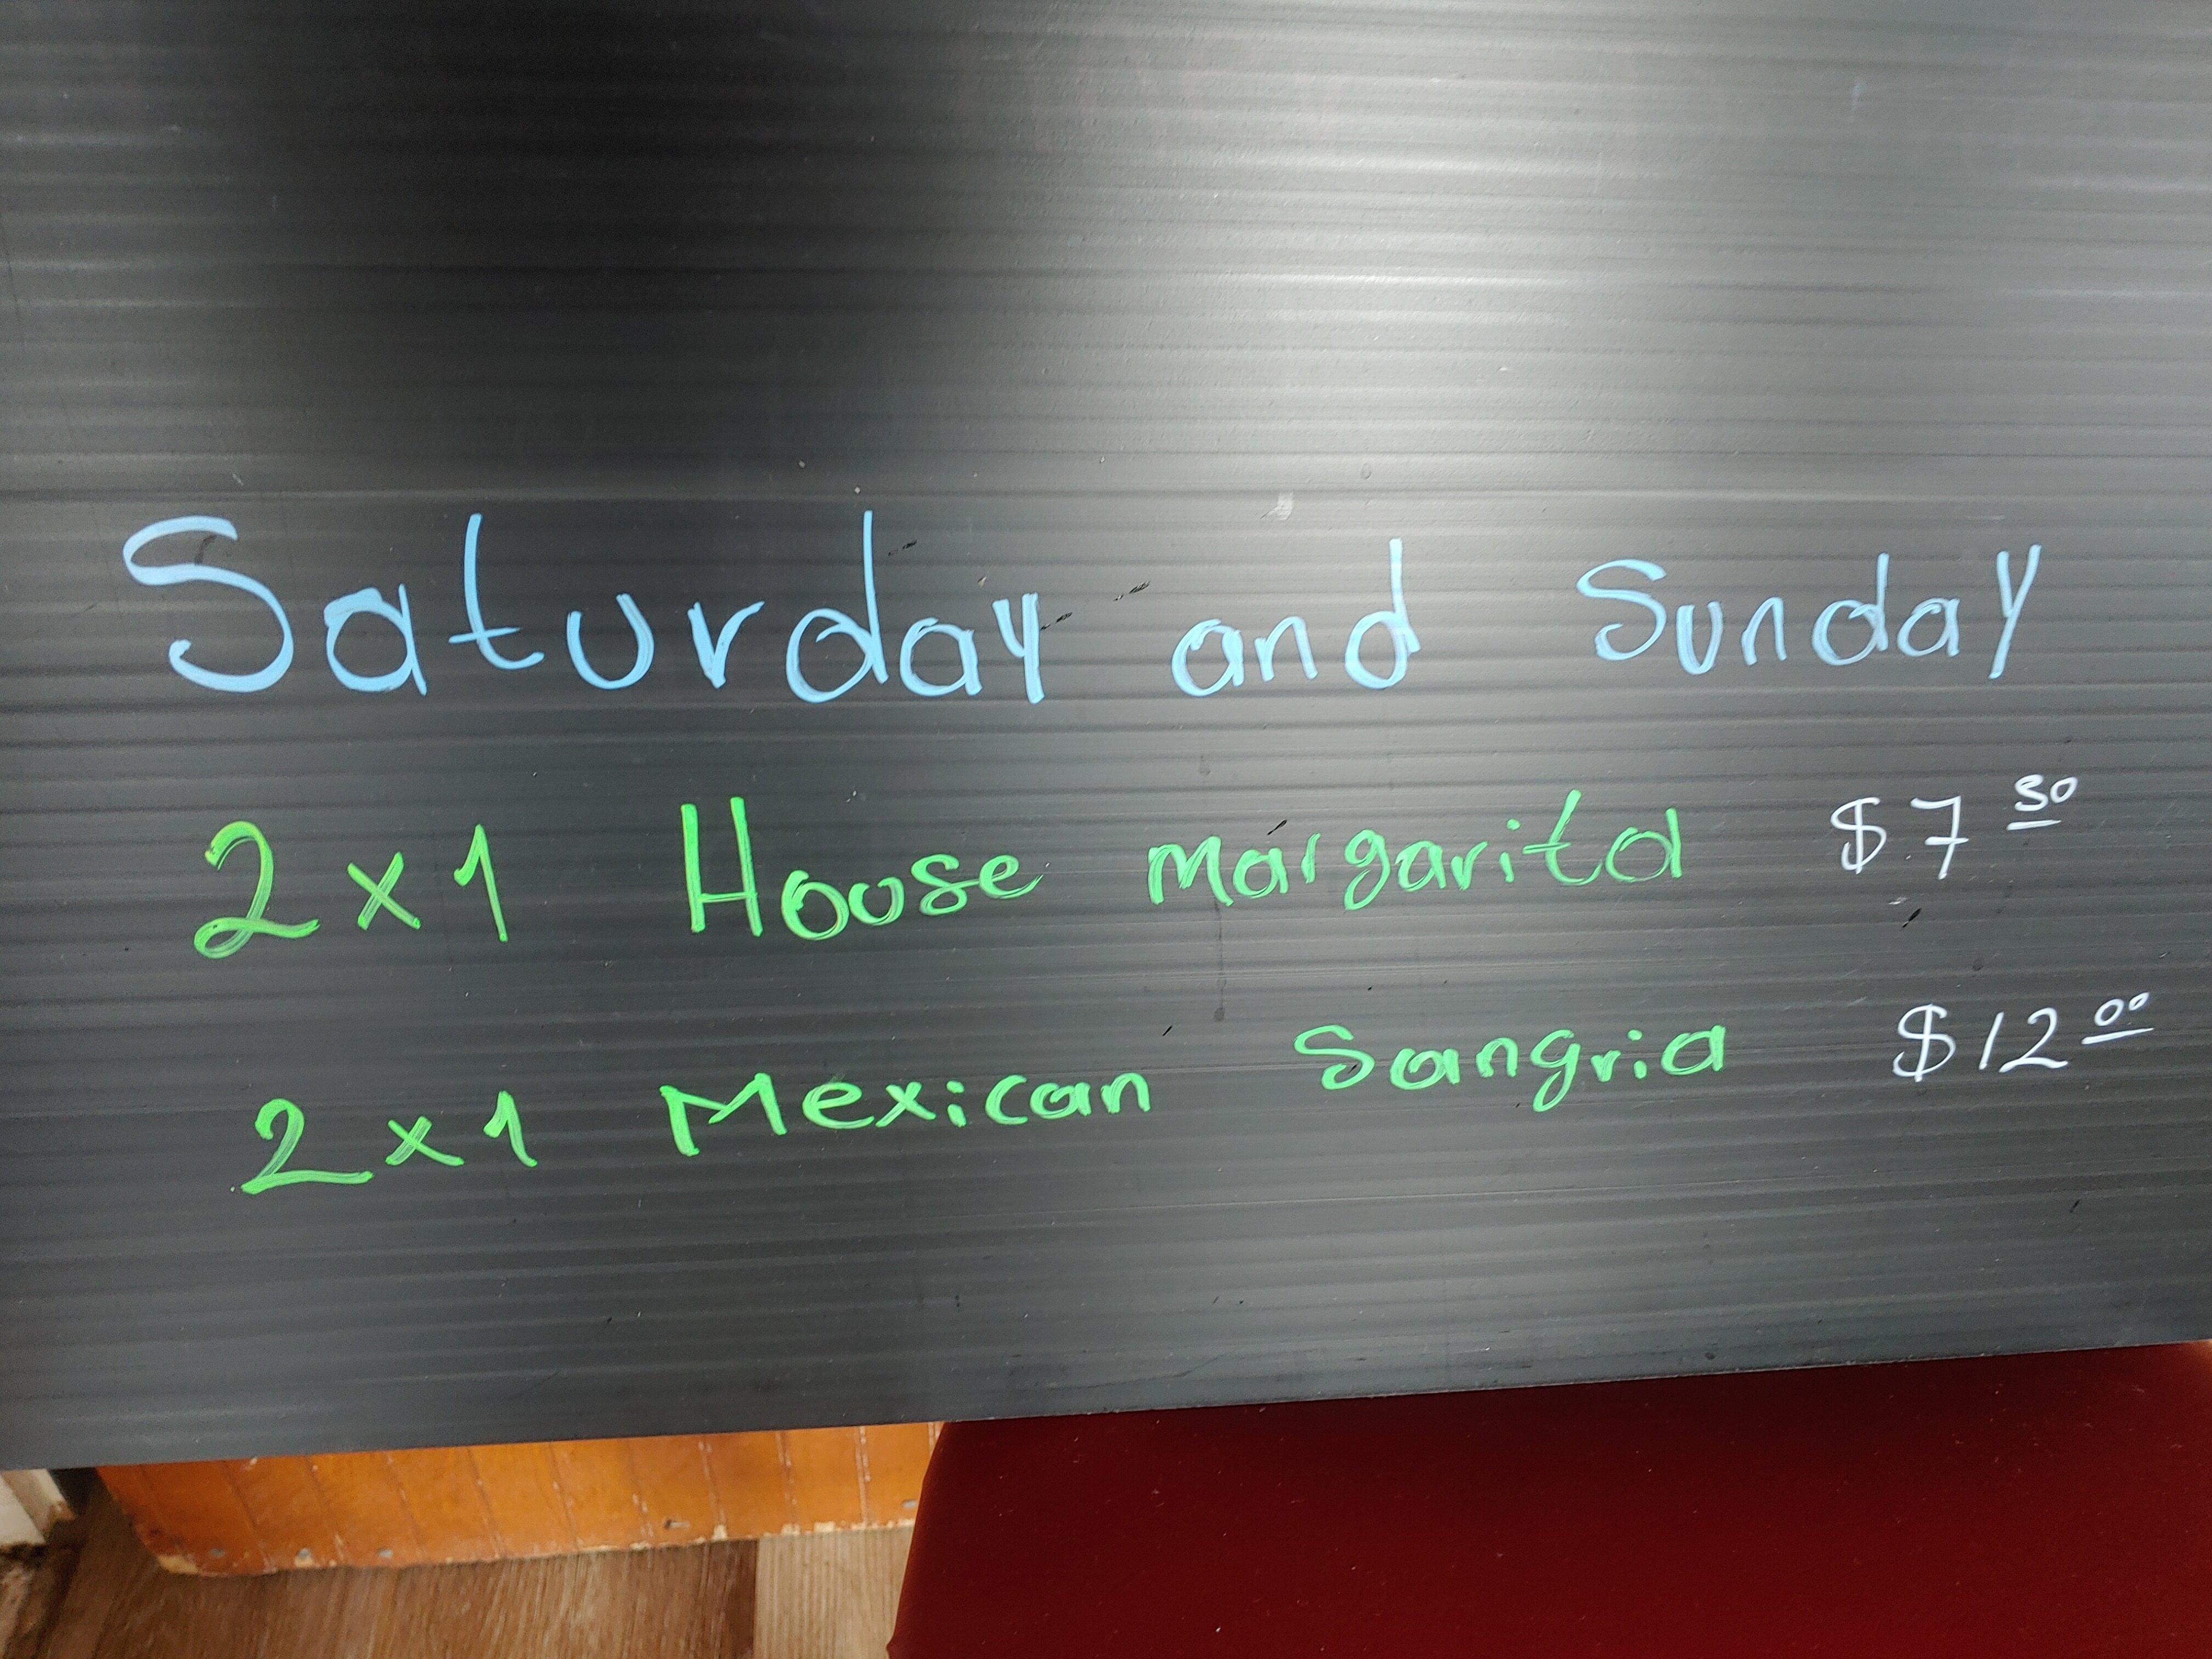 Saturday and Sunday
2x1 House margarita $7 50
2x1 Mexican Sangria $12 00